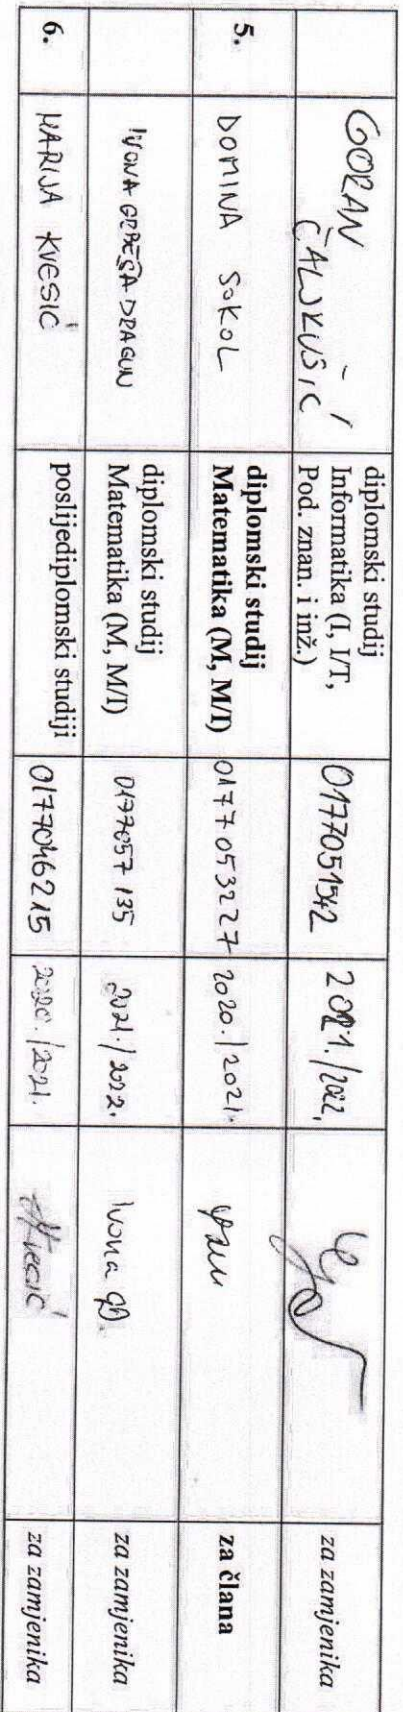 GORAN
diplomski studij
Informatika (I, I/T,
Pod. znan. i inž.)
0177051542
2021./2022.
za zamjenika
5.
DOMINA SOKOL
diplomski studij
Matematika (M, M/I)
0177053227
2020./2021.
za člana
IVONA GRBEŠA DRAGUN
diplomski studij
Matematika (M, M/I)
0177057135
2021./2022.
Ivona GD.
za zamjenika
6.
MARIJA KVESIĆ
poslijediplomski studiji
0177046215
2020./2021.
Kvesić
za zamjenika